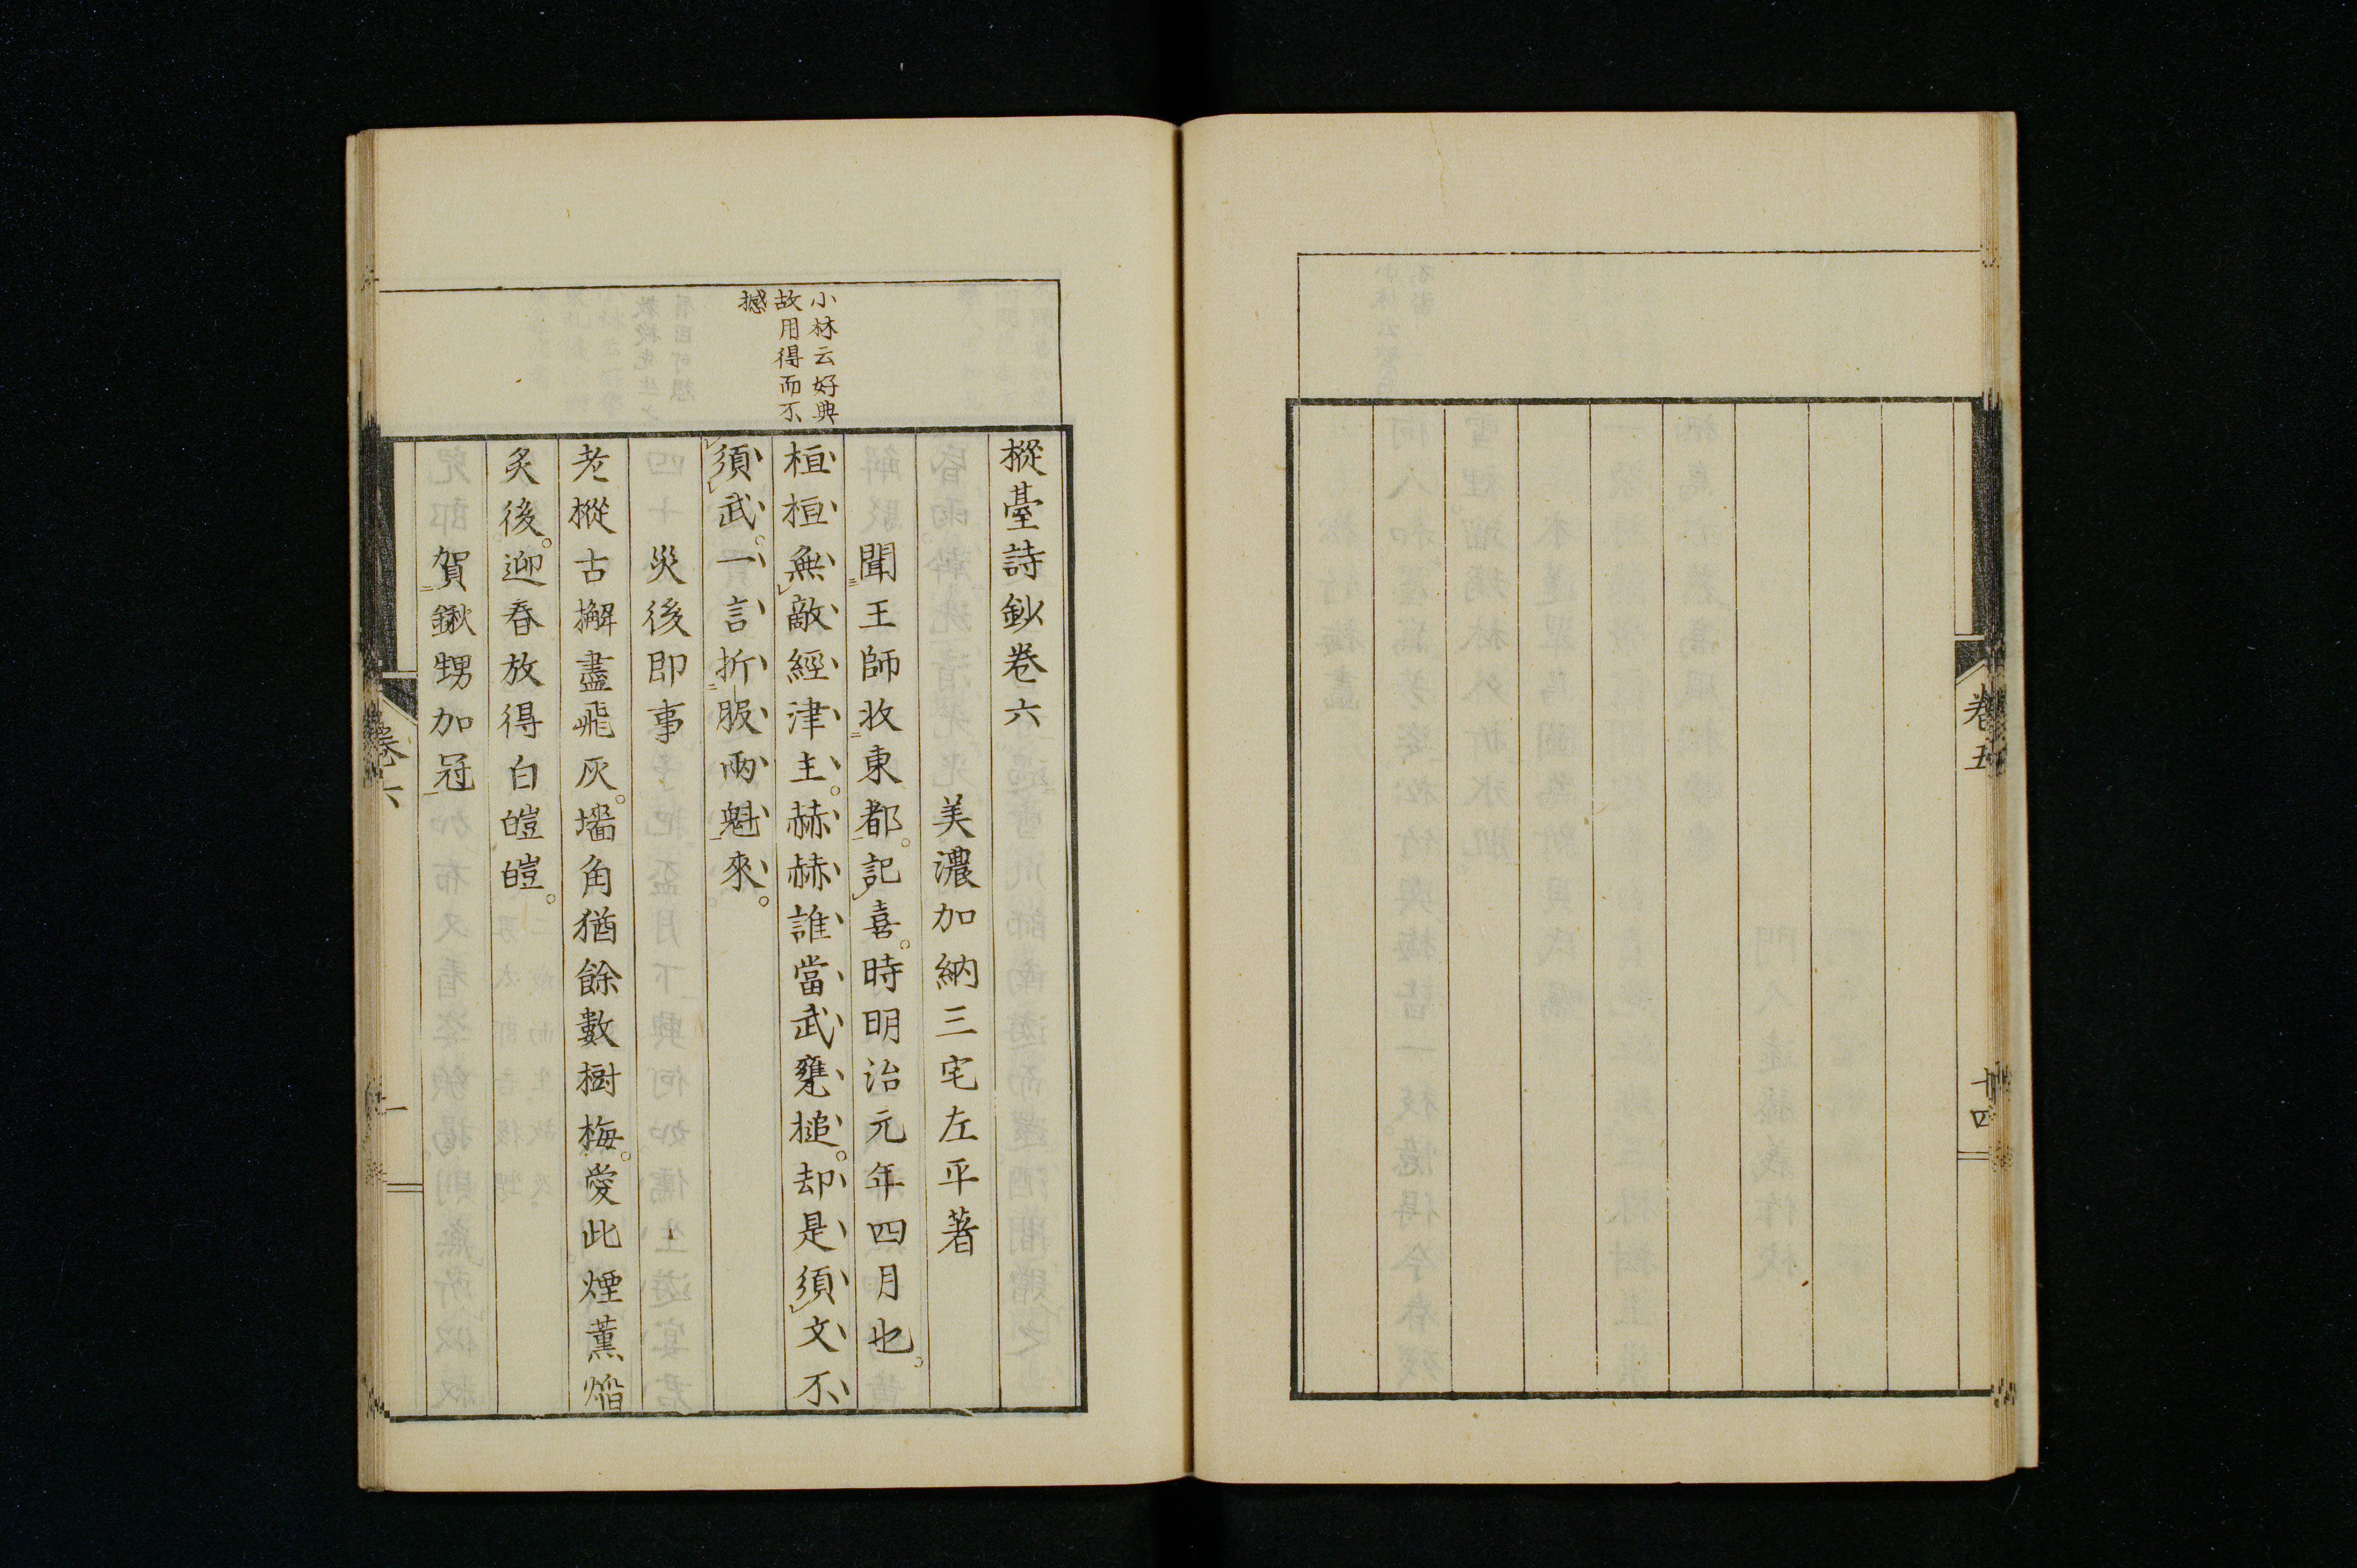 卷五
十四
小林云好典
故用得而不
撼
樅臺詩鈔卷六
美濃加納三宅左平著
聞王師收東都。記喜。時明治元年四月也。
桓桓無敵經津主。赫赫誰當武甕槌。却是須文不
須武。一言折服兩魁來。
災後即事
老樅古檞盡飛灰。墻角猶餘數樹梅。愛此煙薰焰
炙後。迎春放得白皚皚。
賀鍬甥加冠
卷六
一